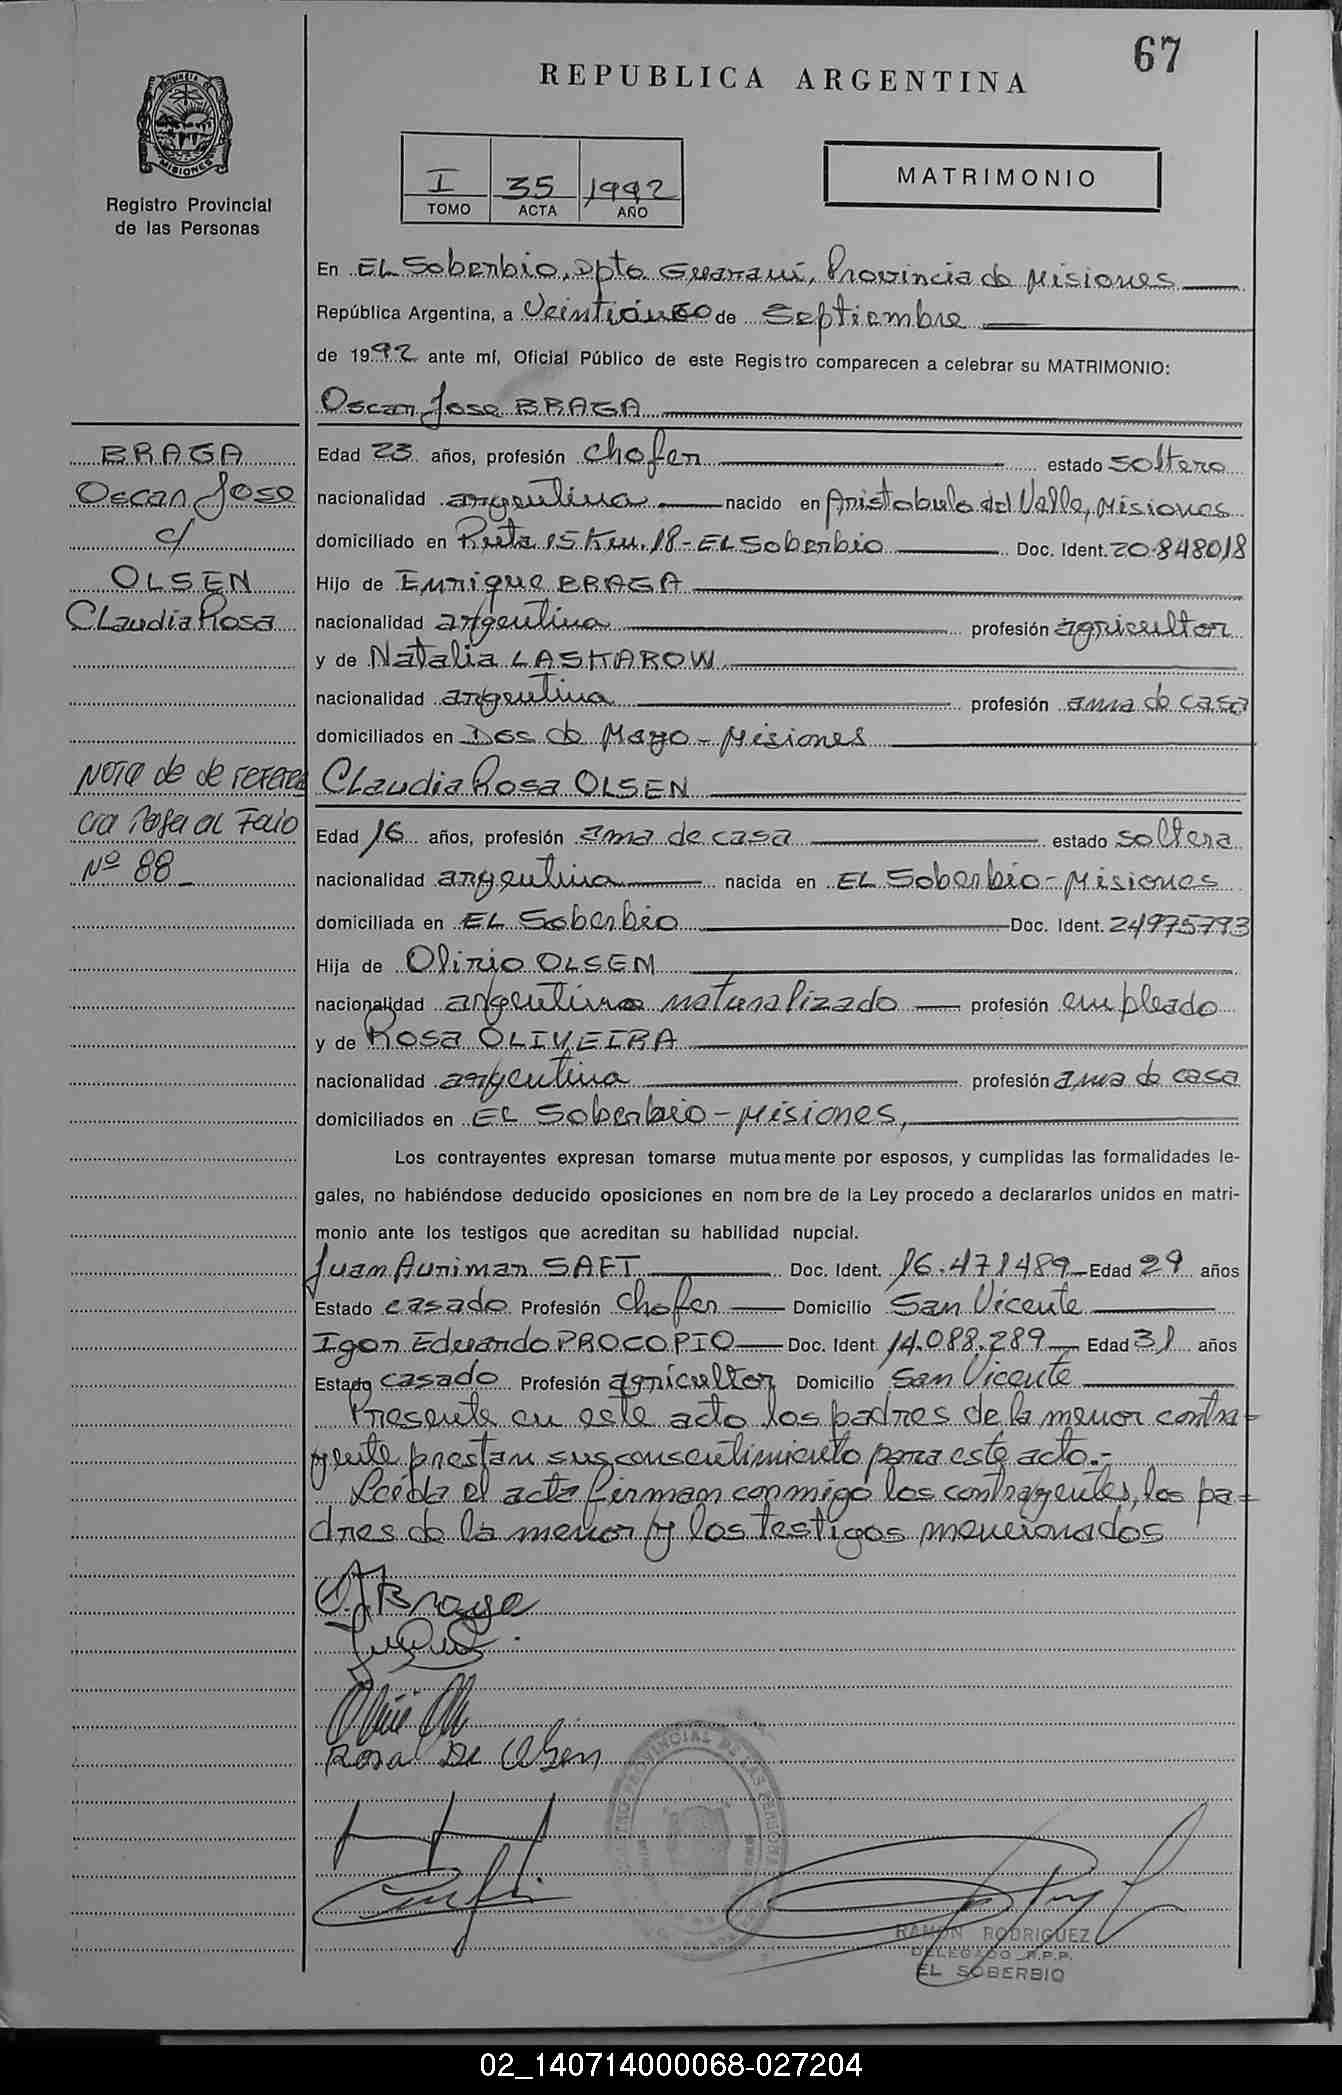 67
REPUBLICA ARGENTINA
PROVINCIA D
MISIONES
Registro Provincial
de las Personas
I 35 1992
TOMO ACTA AÑO
MATRIMONIO
En EL Soberbio, Dpto Guaraní, Provincia de Misiones
República Argentina, a de Septiembre
de 1992 ante mí, Oficial Público de este Registro comparecen a celebrar su MATRIMONIO:
Oscar Jose BRAGA
BRAGA
Oscar Jose
c/
OLSEN
Claudia Rosa
Nota de de referen
cia Pasa al Folio
Nº 88
Edad 23 años, profesión chofer estado soltero
nacionalidad argentina nacido en Aristobulo del Valle, Misiones
domiciliado en Ruta 15 Km. 18 - EL Soberbio Doc. Ident. 20.848018
Hijo de Enrique BRAGA
nacionalidad argentina profesión agricultor
y de Natalia LASKAROW
nacionalidad argentina profesión ama de casa
domiciliados en Dos de Mayo - Misiones
Claudia Rosa OLSEN
Edad 16 años, profesión ama de casa estado soltera
nacionalidad argentina nacida en EL Soberbio - Misiones
domiciliada en EL Soberbio Doc. Ident. 24975793
Hija de Olirio OLSEN
nacionalidad argentino naturalizado profesión empleado
y de Rosa OLIVEIRA
nacionalidad argentina profesión ama de casa
domiciliados en EL Soberbio - Misiones,
Los contrayentes expresan tomarse mutuamente por esposos, y cumplidas las formalidades le-
gales, no habiéndose deducido oposiciones en nombre de la Ley procedo a declararlos unidos en matri-
monio ante los testigos que acreditan su habilidad nupcial.
Juan Auriman SAFT Doc. Ident. 16.471489 Edad 29 años
Estado casado Profesión chofer Domicilio San Vicente
Igor Eduardo PROCOPIO Doc. Ident. 14.088.289 Edad 31 años
Estado casado Profesión agricultor Domicilio San Vicente
Presente en este acto los padres de la menor contra=
yente prestan sus consentimiento para este acto.-
Leída el acta firman conmigo los contrayentes, los pa=
dres de la menor y los testigos mencionados
OJBraga
Rosa De Olsen
RAMON RODRIGUEZ
DELEGADO R.P.P.
EL SOBERBIO
02_140714000068-027204